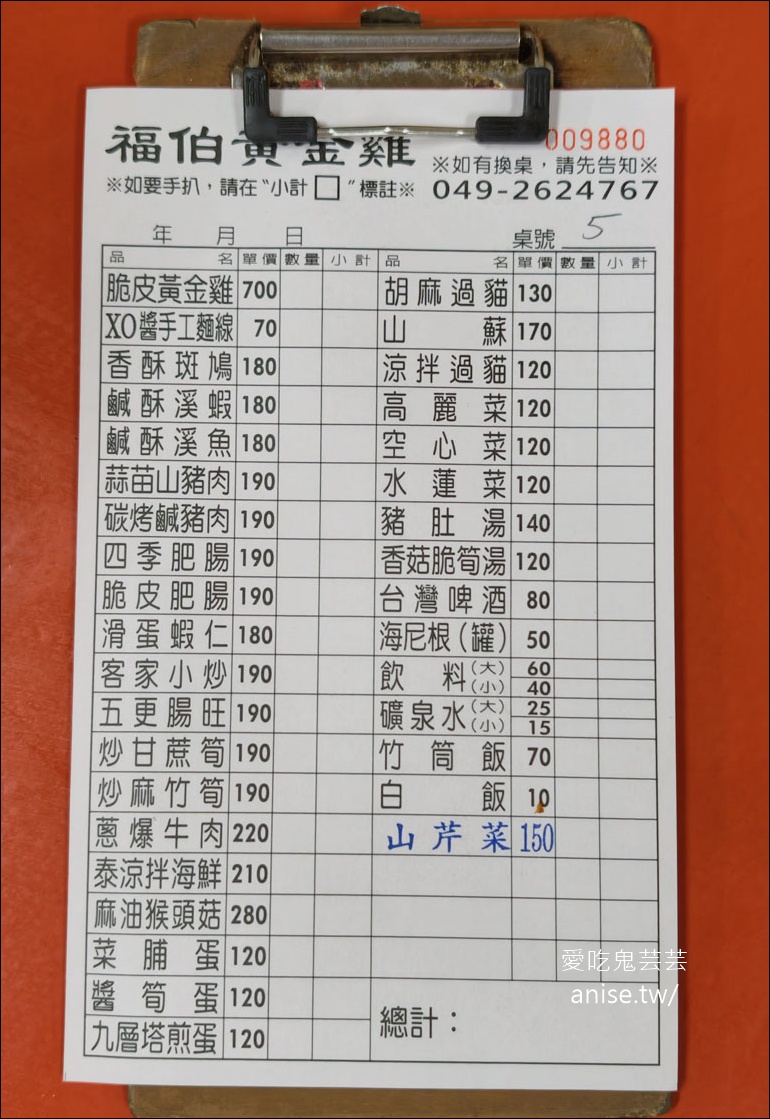 福伯黃金雞
009880
※如有換桌，請先告知※
※如要手扒，請在“小計□”標註※
049-2624767
年 月 日
桌號 5
品名 單價 數量 小計
脆皮黃金雞 700
XO醬手工麵線 70
香酥斑鳩 180
鹹酥溪蝦 180
鹹酥溪魚 180
蒜苗山豬肉 190
碳烤鹹豬肉 190
四季肥腸 190
脆皮肥腸 190
滑蛋蝦仁 180
客家小炒 190
五更腸旺 190
炒甘蔗筍 190
炒麻竹筍 190
蔥爆牛肉 220
泰涼拌海鮮 210
麻油猴頭菇 280
菜脯蛋 120
醬筍蛋 120
九層塔煎蛋 120
品名 單價 數量 小計
胡麻過貓 130
山蘇 170
涼拌過貓 120
高麗菜 120
空心菜 120
水蓮菜 120
豬肚湯 140
香菇脆筍湯 120
台灣啤酒 80
海尼根(罐) 50
飲料(大) 60
(小) 40
礦泉水(大) 25
(小) 15
竹筒飯 70
白飯 10
山芹菜 150
總計：
愛吃鬼芸芸
anise.tw/